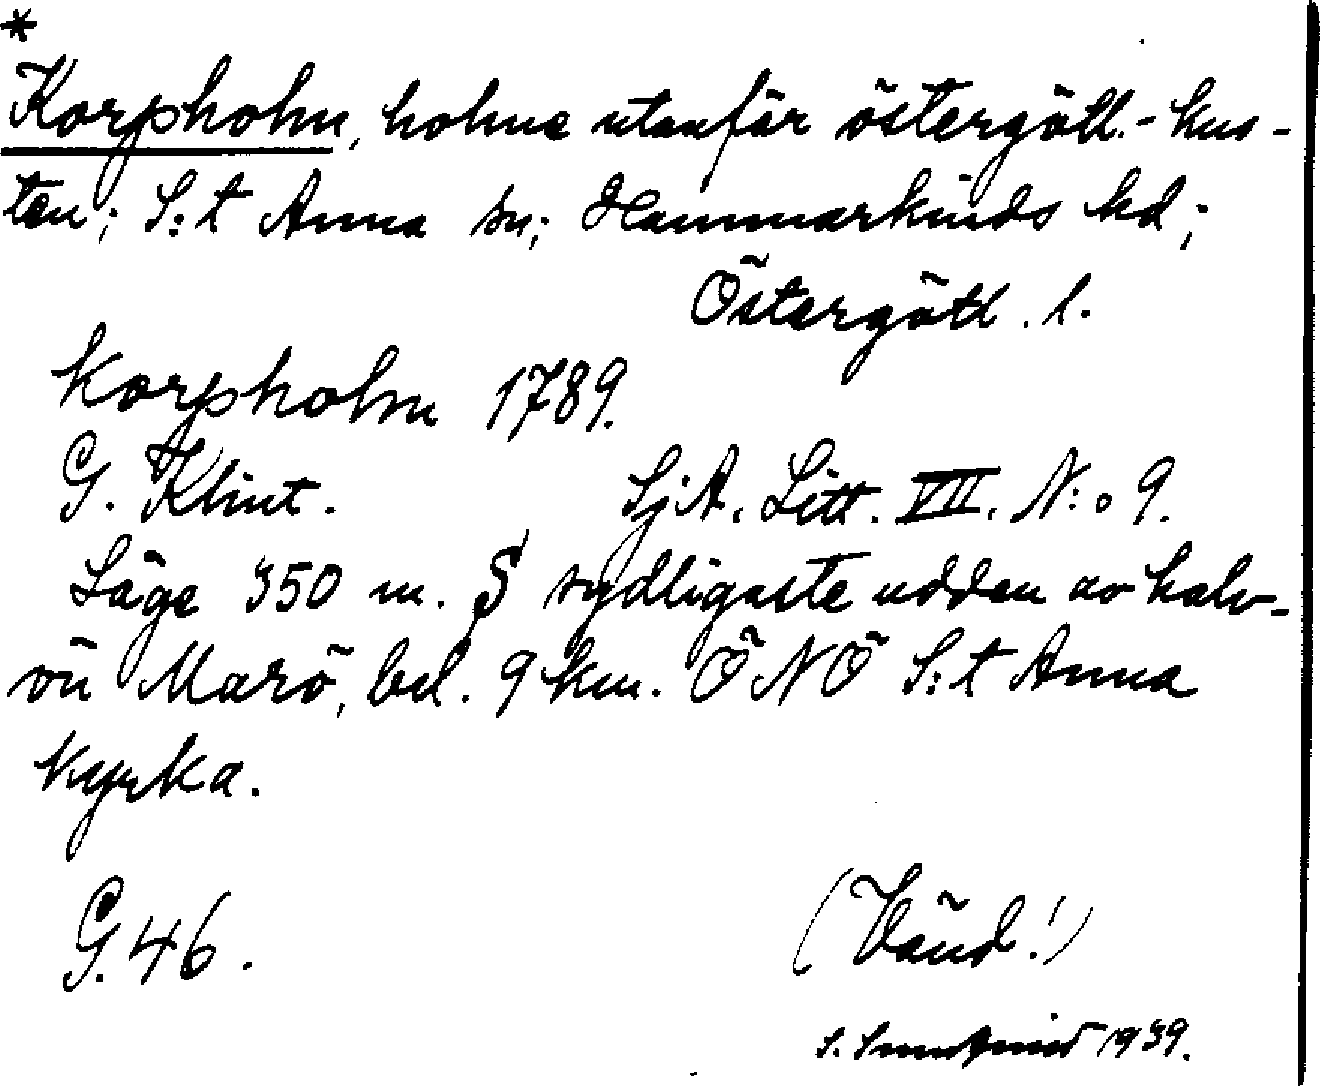 *
Korpholm, holme utanför östergötl.-kus-
ten; S:t Anna sn; Hammarkinds hd;
Östergötl. l.
Korpholm 1789.
G. Klint. SjA. Litt. VII. N:o 9.
Läge 350 m. S sydligaste udden av halv-
ön Marö, bel. 9 km. ÖNÖ S:t Anna
kyrka.
G. 46.
(Vänd!)
S. 1939.